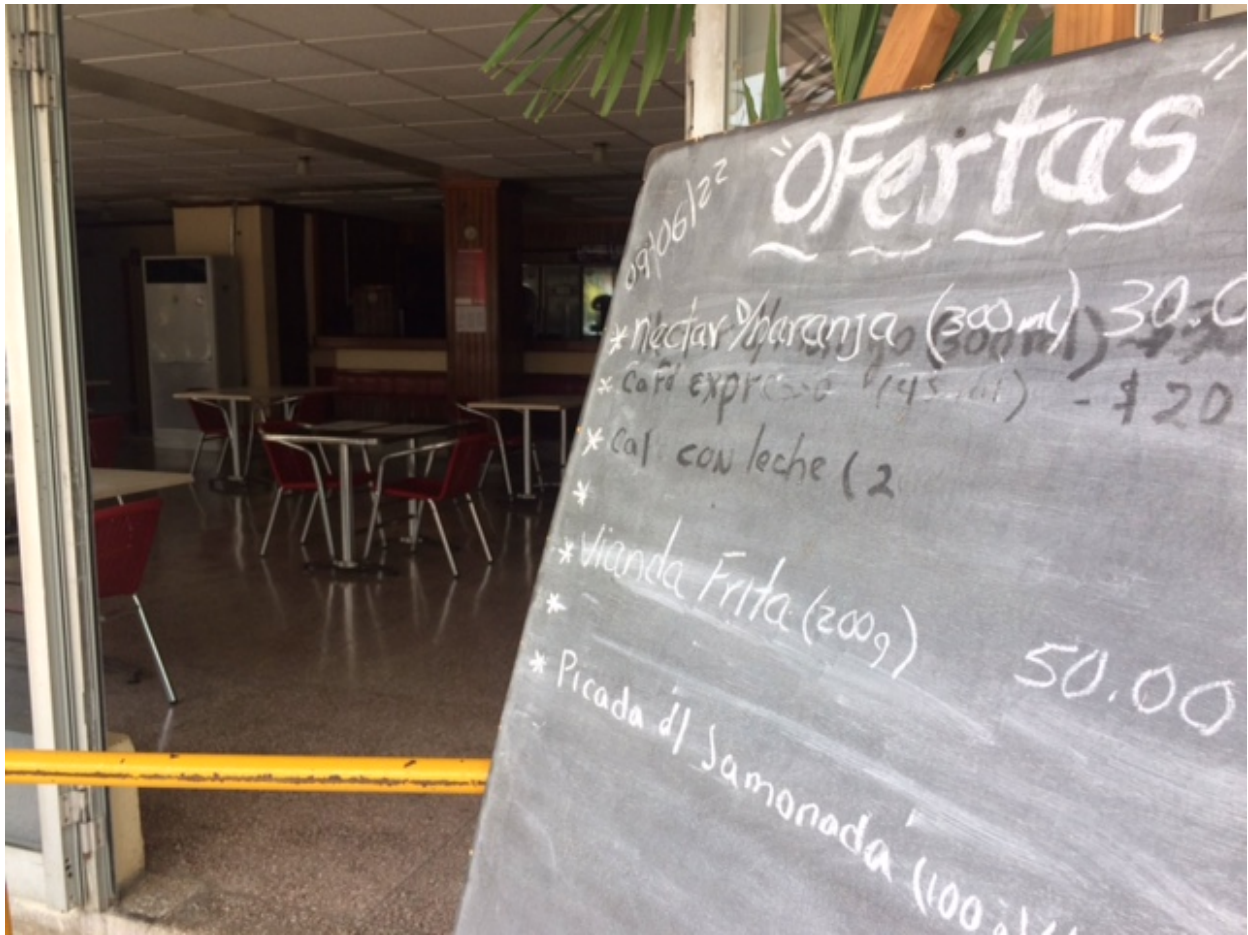 "Ofertas"
09/06/22
* Nectar d/naranja (300 ml) 30.0
* café expreso (45 ml) - $20
* caf con leche (2
*
* Vianda Frita (200g) 50.00
*
* Picada d/ Jamonada (100g)